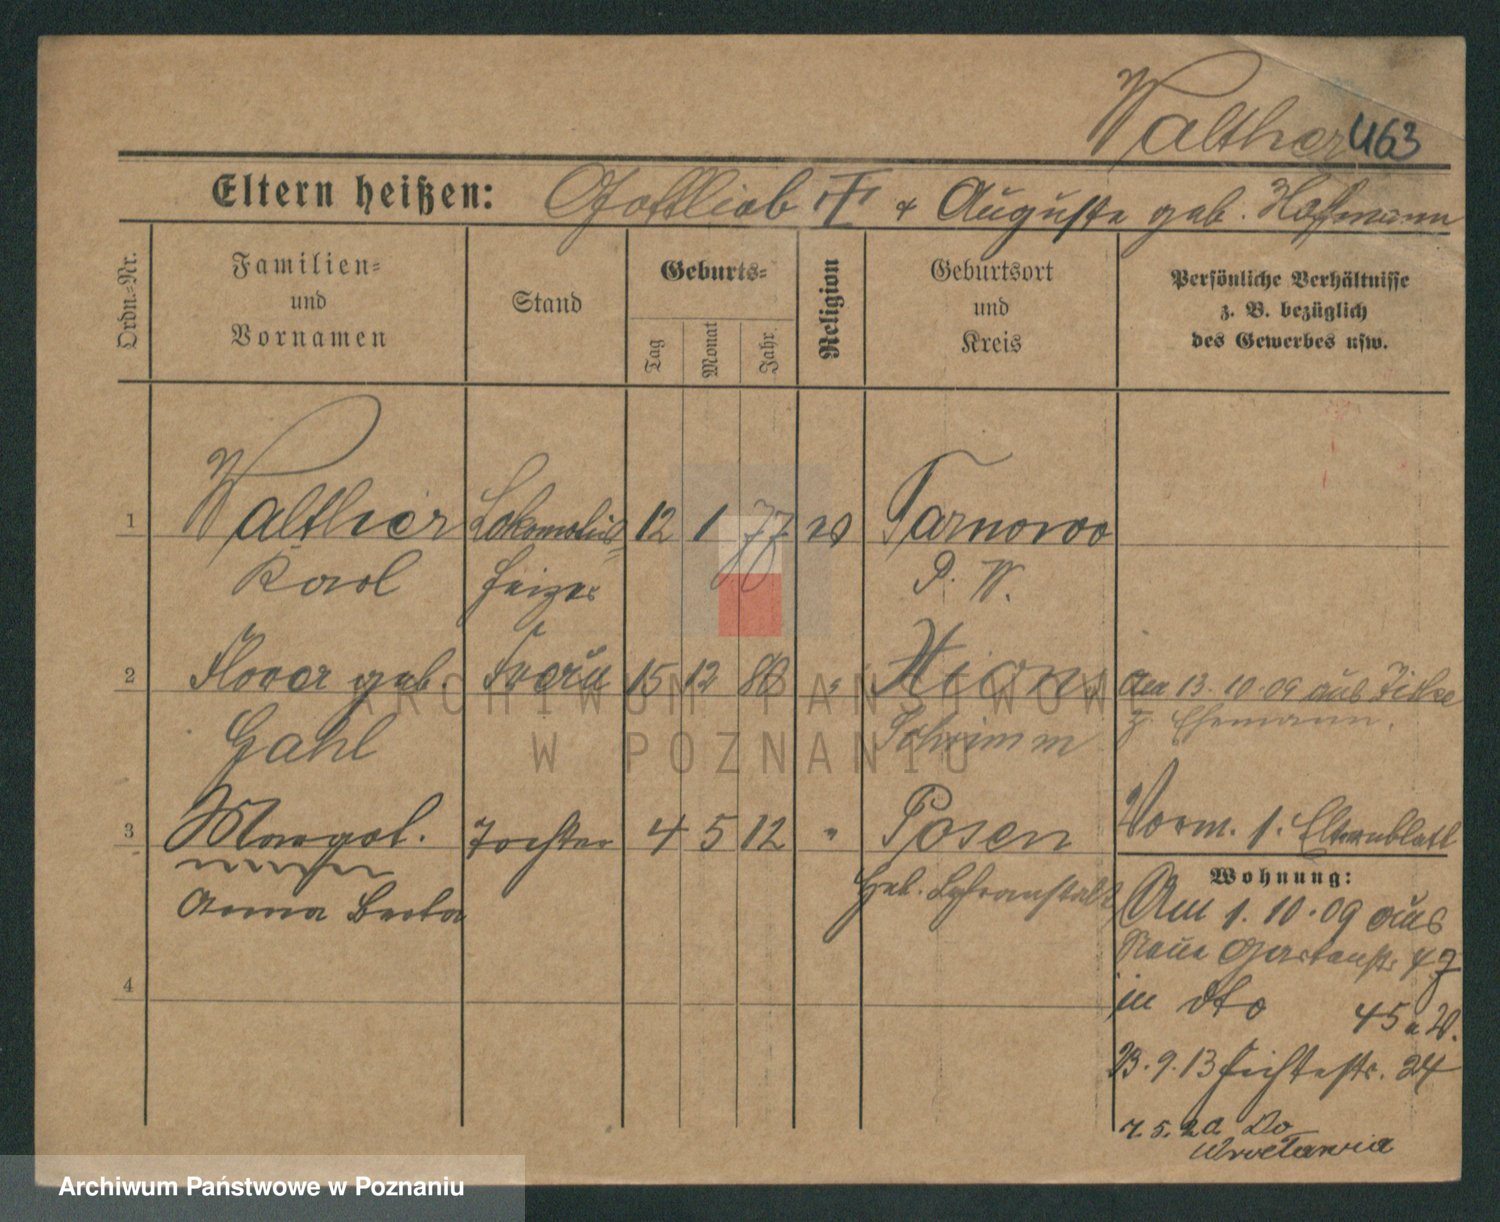 Walther 463
Eltern heißen: Gottlieb † + Auguste geb. Hoffmann
Ordn.-Nr.
Familien-
und
Vornamen
Stand
Geburts-
Tag
Monat
Jahr
Religion
Geburtsort
und
Kreis
Persönliche Verhältnisse
z. B. bezüglich
des Gewerbes usw.
1 Walther Lokomotiv 12 1 77 Tarnowo
Karl heizer P. W.
2 geb. Frau 15 12 88 " am 13.10.09 aus
Gahl Schrimm z. Ehemann.
3 Margot. Tochter 4 5 12 " Posen Vorm. 1. Elternblatt
Anna Berta Heb. Lehranstalt
Wohnung:
Am 1.10.09 aus
Neue Gartenstr. 47
in dto 45 a W.
23.9.13 Fichtestr. 24
4
7.5.20 Do
Wrocławia
ARCHIWUM PAŃSTWOWE
W POZNANIU
Archiwum Państwowe w Poznaniu